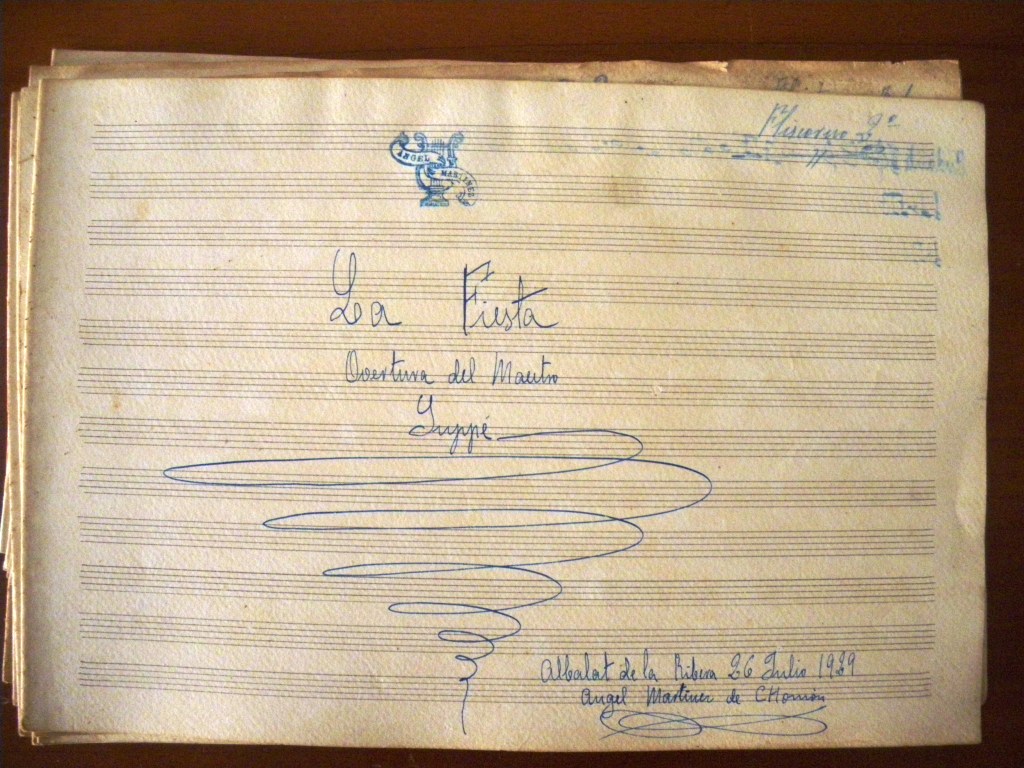 Fliscorno 2º
ANGEL MARTINEZ
La Fiesta
Overtura del Maestro
Suppé
Albalat de la Ribera 26 Julio 1929
Angel Martinez de CHomón